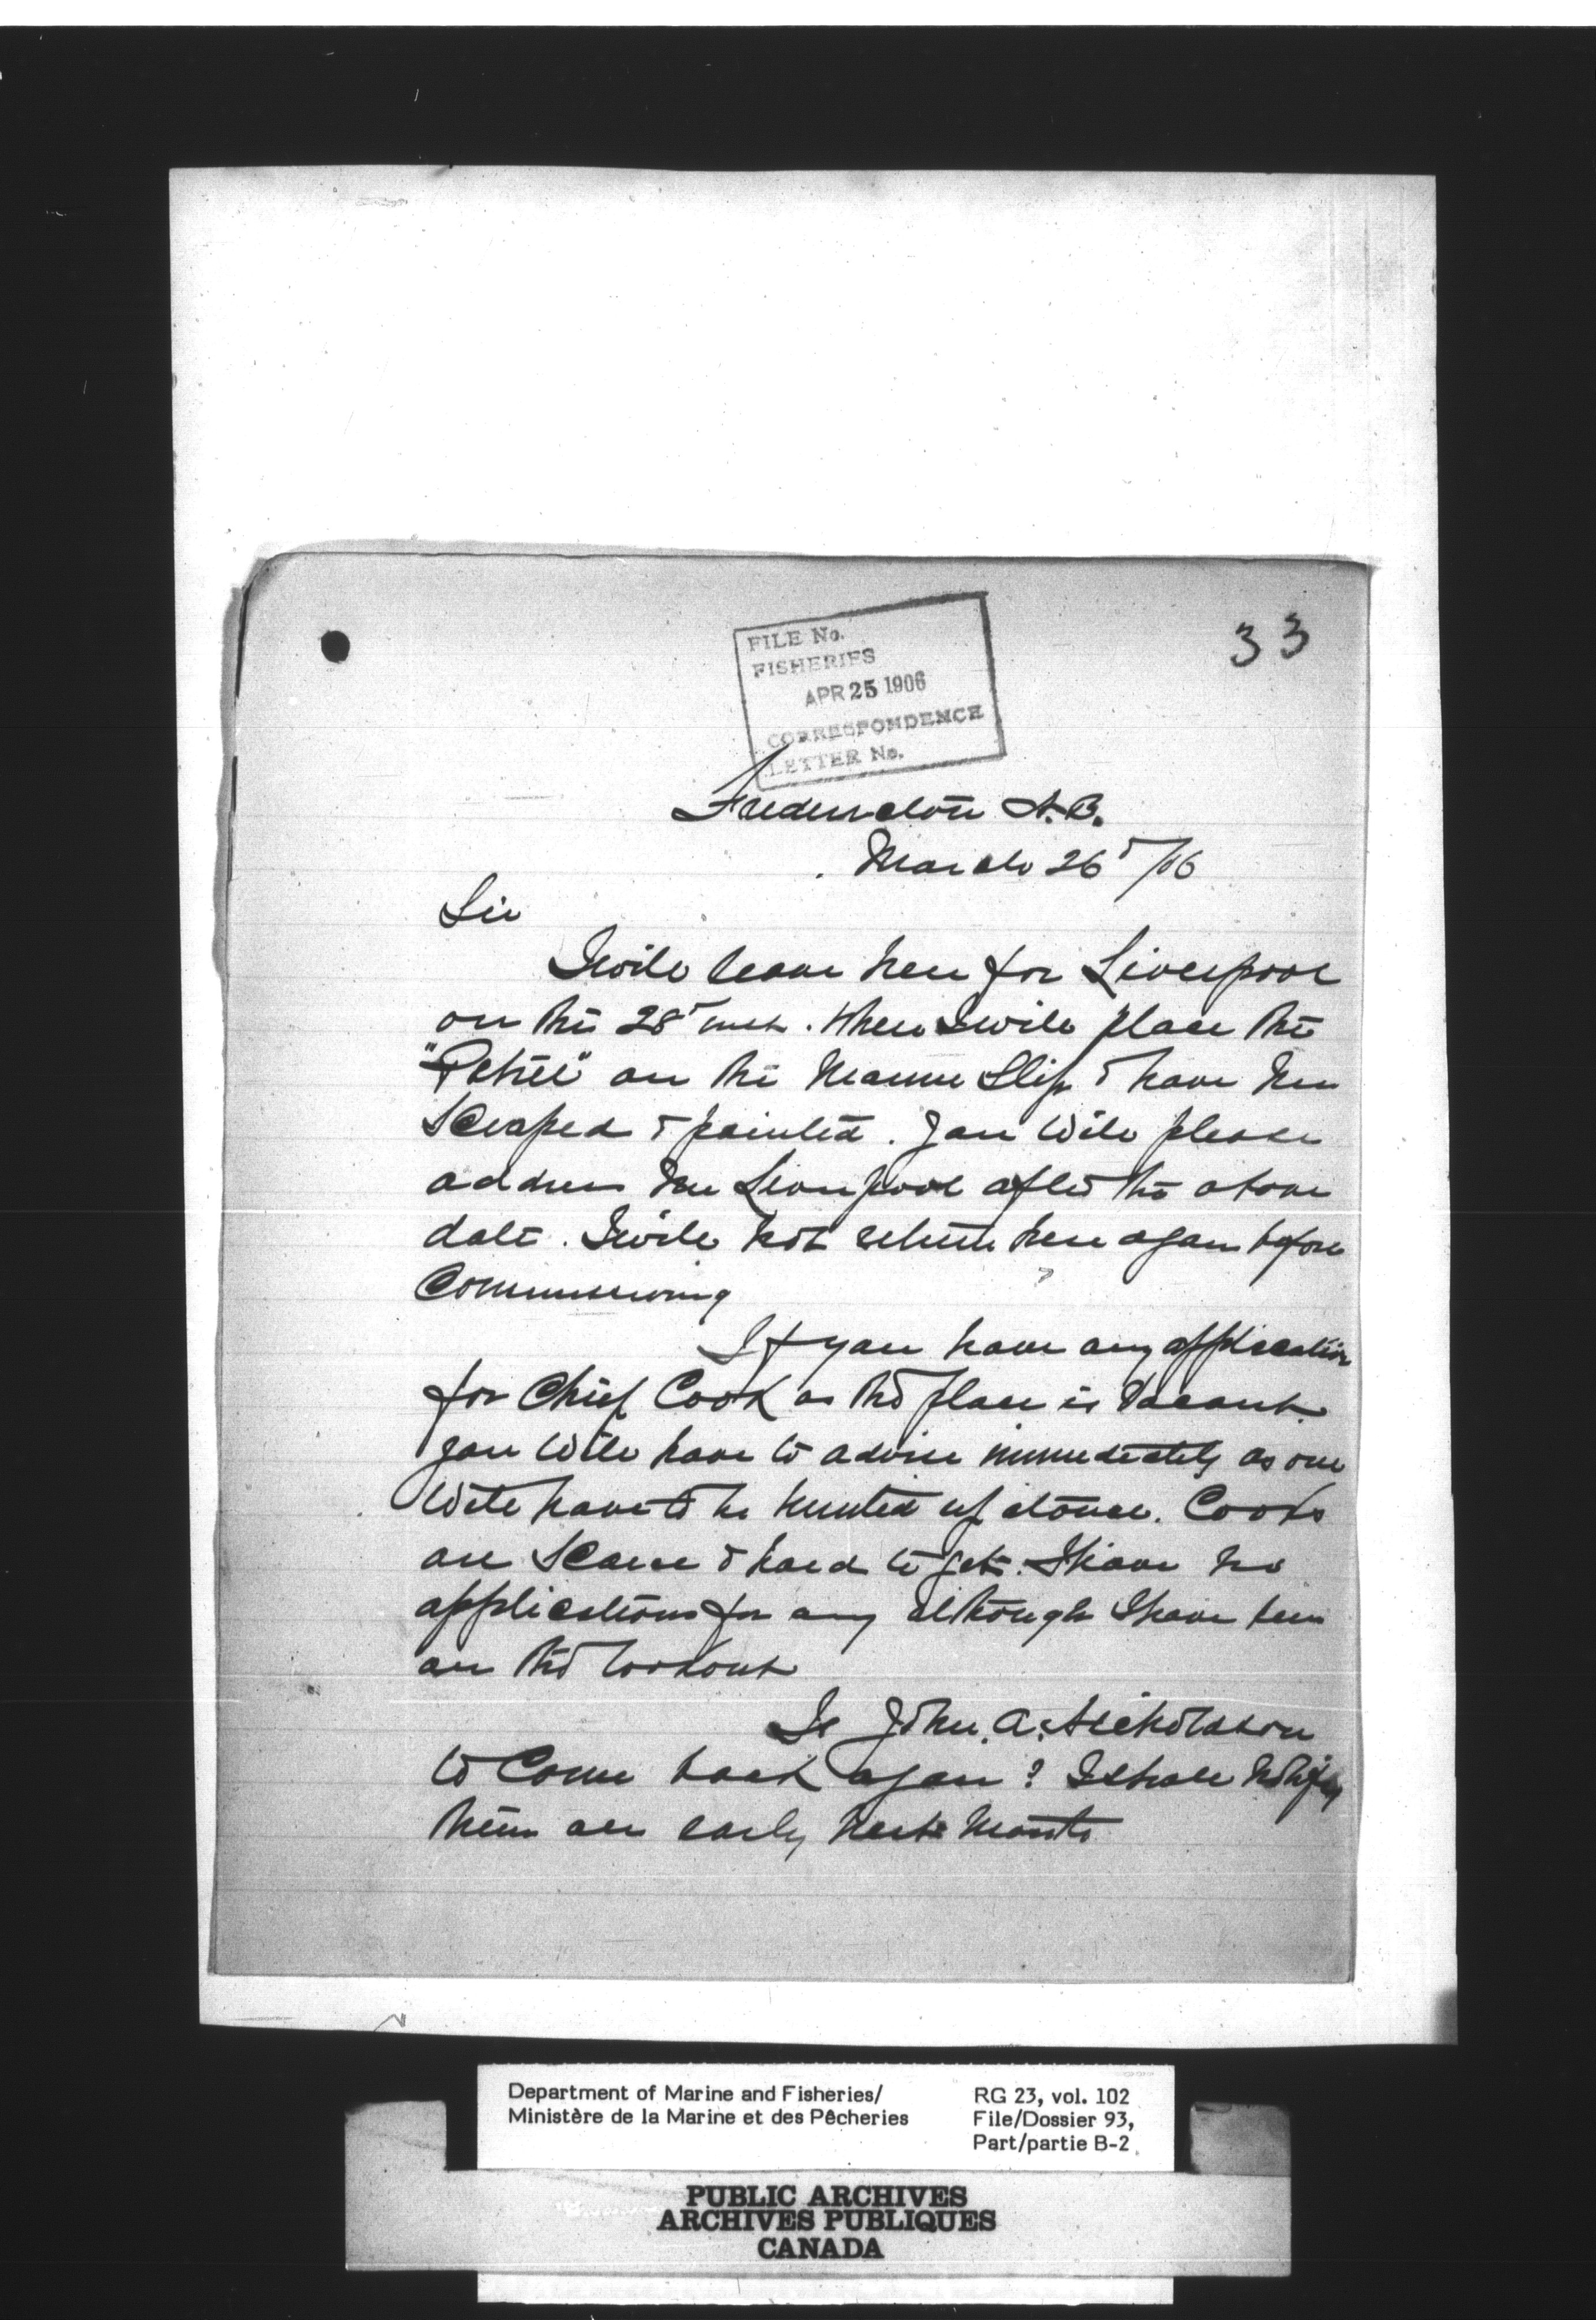 33
FILE No.
FISHERIES
APR 25 1906
CORRESPONDENCE
LETTER No.
Fredericton N.B.
March 26th/06
Sir
I will leave here for Liverpool
on the 28th inst. when I will place the
"Petrel" on the Marine Slip & have her
scraped & painted. You will please
address me Liverpool after the above
date. I will not return here again before
Commissioning
If you have any application
for Chief Cook as the place is vacant
you will have to advise immediately as one
will have to be hunted up at once. Cooks
are scarce & hard to get. I have no
applications for any although I have been
on the lookout
Is John. A. Nicholson
to come back again? I shall notify
them all early next month
Department of Marine and Fisheries/
Ministère de la Marine et des Pêcheries
RG 23, vol. 102
File/Dossier 93,
Part/partie B-2
PUBLIC ARCHIVES
ARCHIVES PUBLIQUES
CANADA